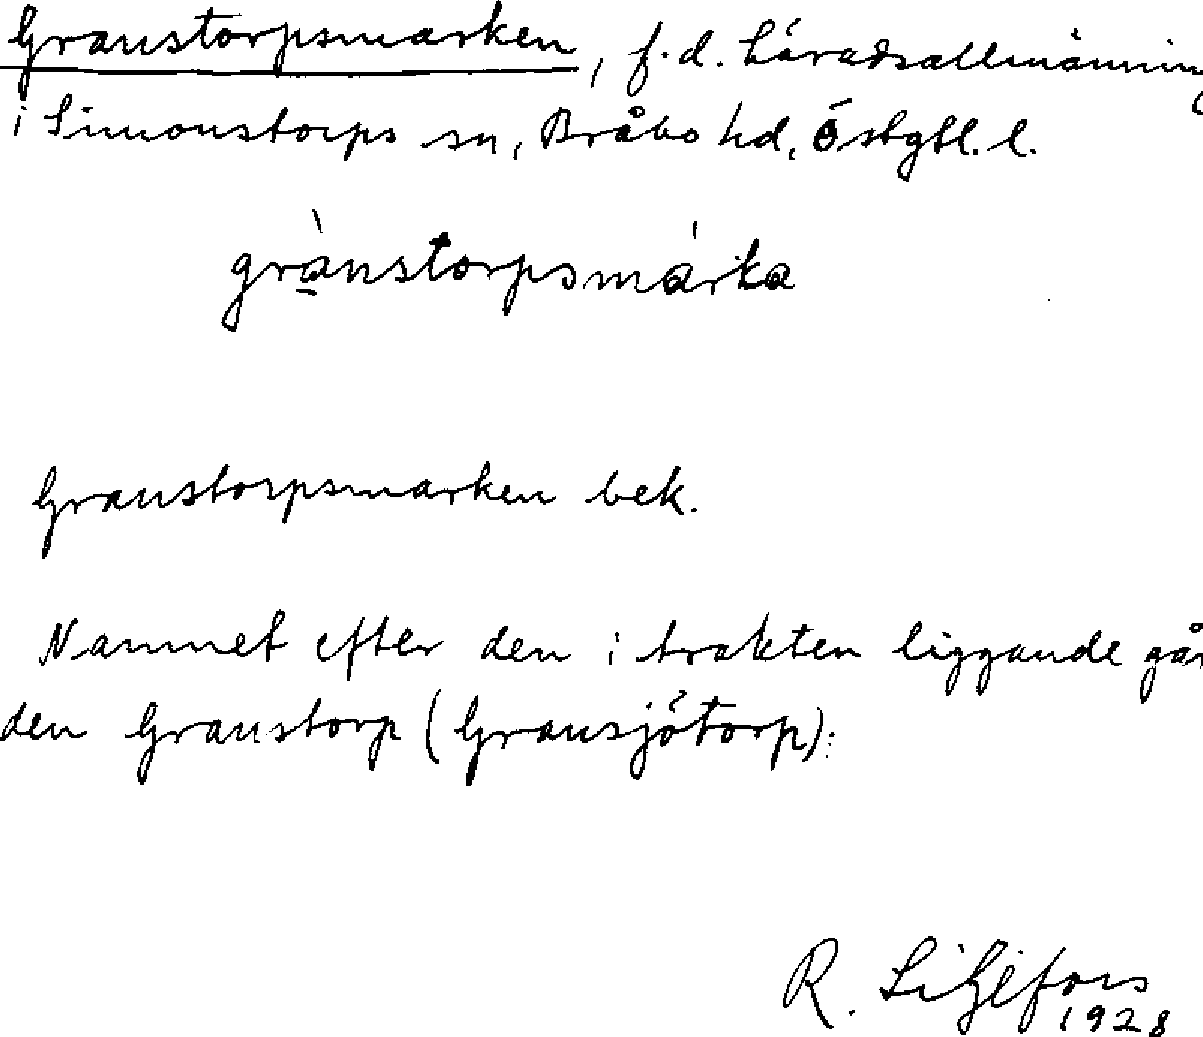 Granstorpsmarken, f.d. häradsallmänning
i Simonstorps sn, Bråbo hd, Östgtl. l.
grànstorpsmárka
Granstorpsmarken bek.
Namnet efter den i trakten liggande går
den Granstorp (Gransjötorp):
R. Liljefors
1928